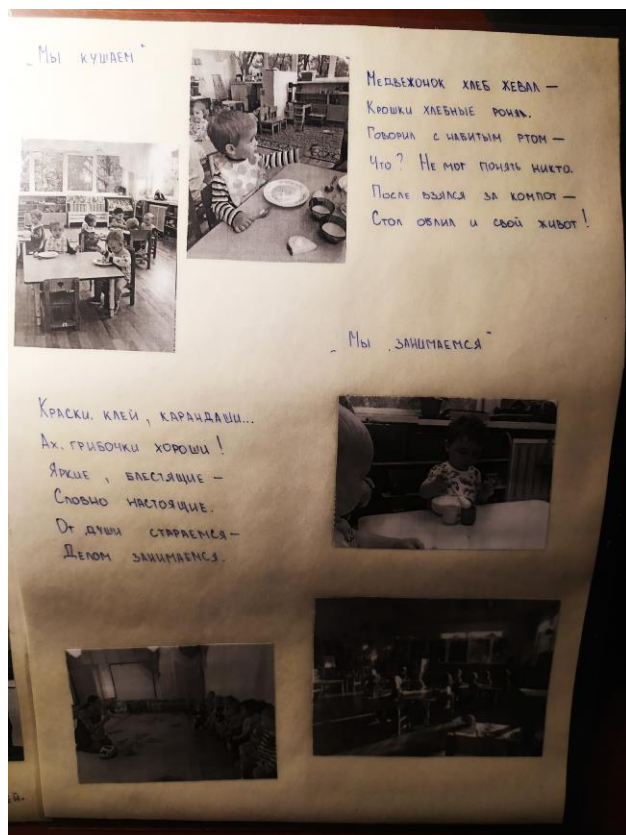 „Мы кушаем"
Медвежонок хлеб жевал —
Крошки хлебные ронял.
Говорил с набитым ртом —
Что? Не мог понять никто.
После взялся за компот —
Стол облил и свой живот!
„Мы занимаемся"
Краски. клей, карандаши...
Ах. грибочки хороши!
Яркие, блестящие —
Словно настоящие.
От души стараемся —
Делом занимаемся.